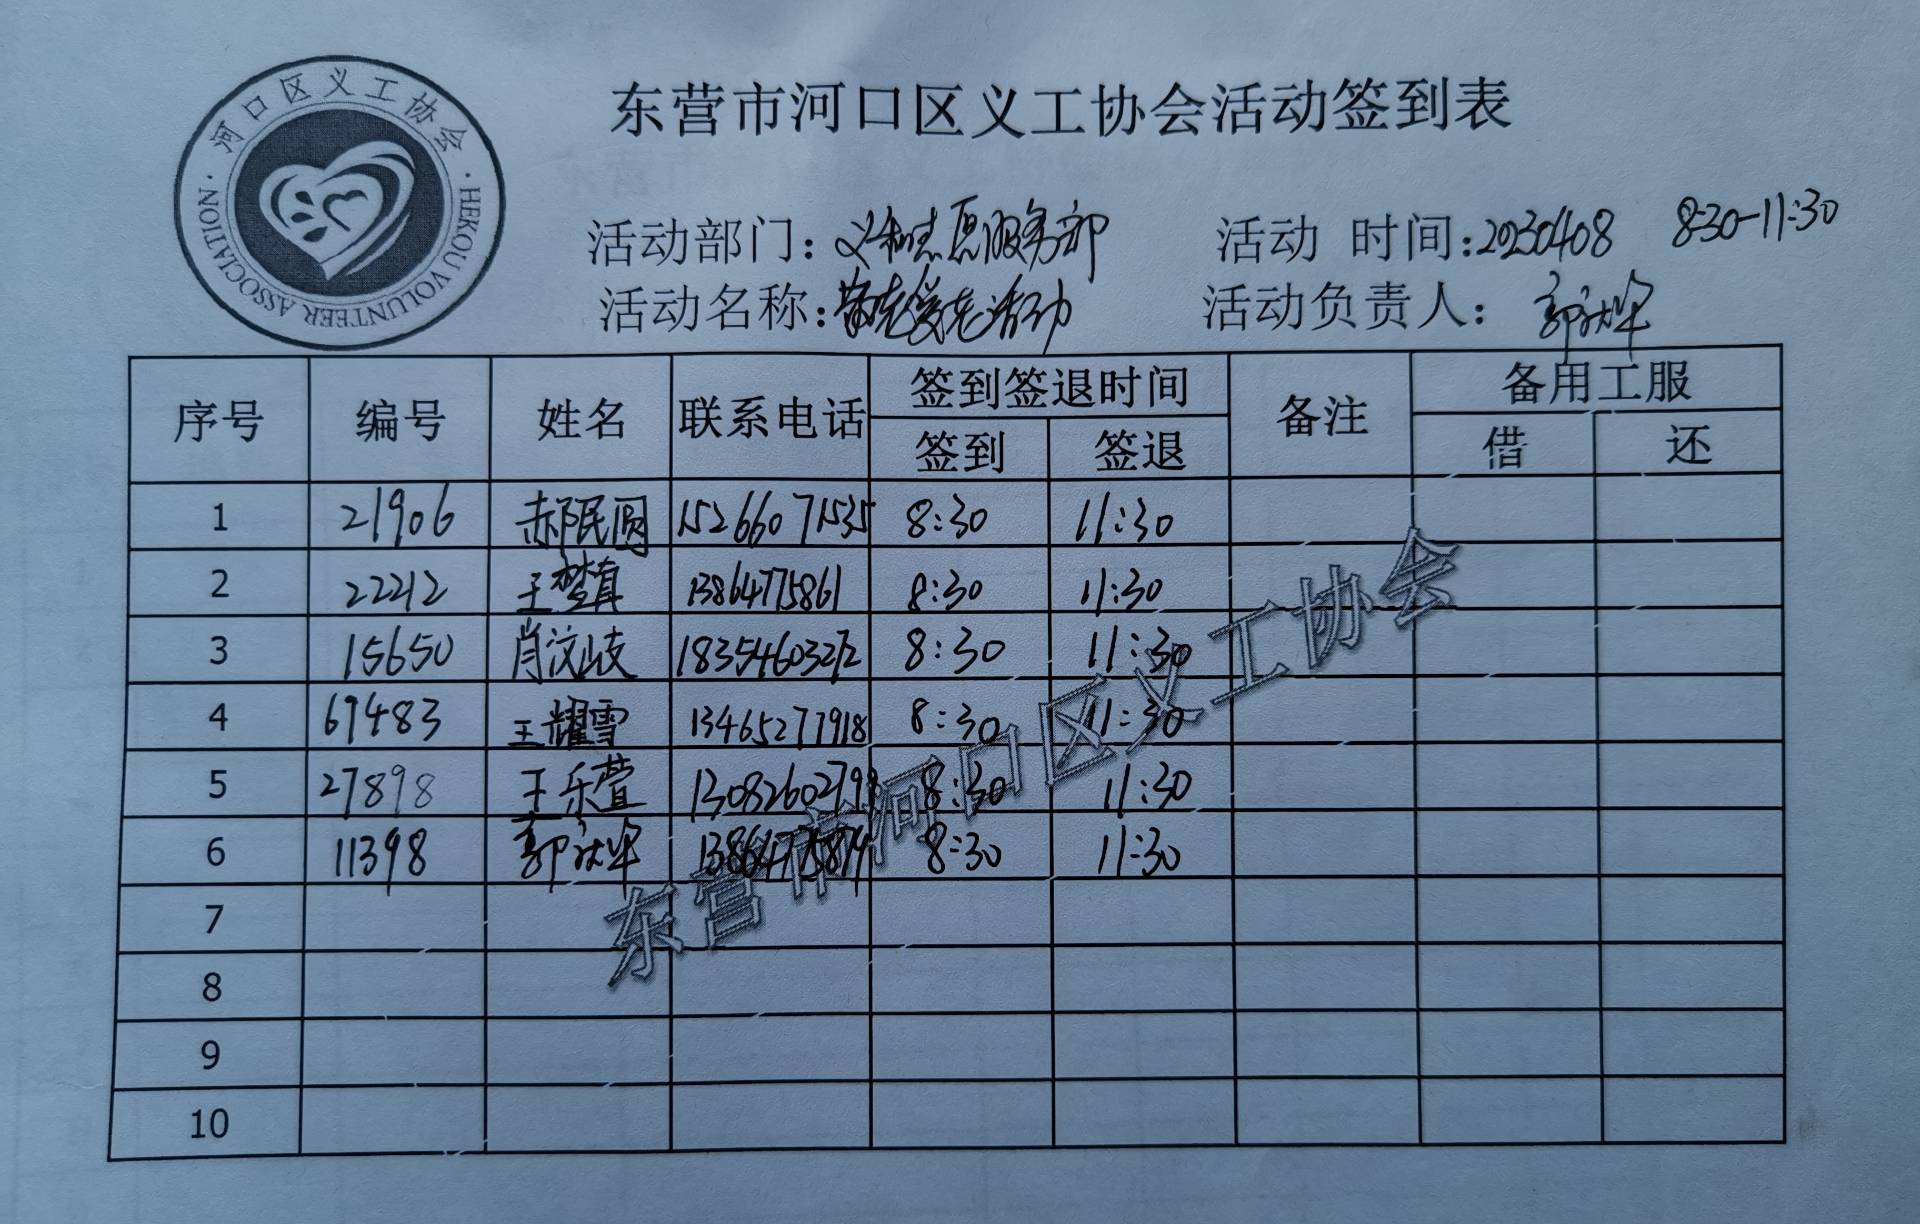 河口区义工协会
HEKOU VOLUNTEER ASSOCIATION
东营市河口区义工协会活动签到表
活动部门：义和志愿服务部 活动 时间：20230408 8:30-11:30
活动名称：敬老爱老活动 活动负责人：郭
序号 编号 姓名 联系电话 签到签退时间 备注 备用工服
签到 签退 借 还
1 21906 郝民圆 15266071535 8:30 11:30
2 22212 王梦真 13864775861 8:30 11:30
3 15650 肖汶岐 18354603272 8:30 11:30
4 69483 王耀雪 13465277918 8:30 11:30
5 27898 王乐萱 13082602798 8:30 11:30
6 11398 郭 13864775874 8:30 11:30
7
8
9
10
东营市河口区义工协会